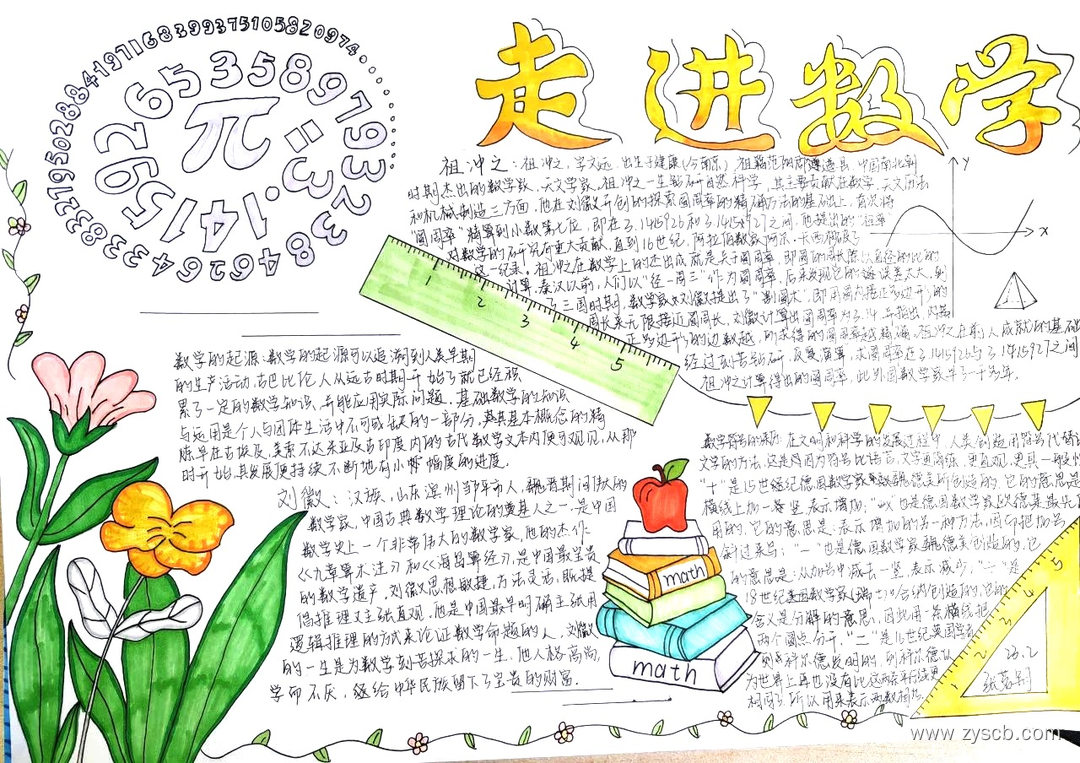 走进数学
π=3.141592653589793238462643383279502884197168399375105820974....
祖冲之:祖冲之,字文远,出生于建康(今南京),祖籍范阳郡遒县,中国南北朝
时期杰出的数学家、天文学家。祖冲之一生钻研自然科学,其主要贡献在数学、天文历法
和机械制造三方面,他在刘徽开创的探索圆周率的精确方法的基础上,首次将
"圆周率"精算到小数第七位,即在3.1415926和3.1415927之间,他提出的"祖率"
对数学的研究有重大贡献,直到16世纪,阿拉伯数学家阿尔·卡西才打破了
这一纪录。祖冲之在数学上的杰出成就是关于圆周率
计算,秦汉以前,人们以"径一周三"作为圆周率,后来发现它的误差太大,到
了三国时期,数学家刘徽提出了"割圆术",即用圆内接正多边形的
周长来无限接近圆周长,刘徽计算出圆周率为3.14
正多边形的边数越 所求得的圆周率越精确,祖冲之在前人成就的基础
经过刻苦钻研,反复演算,求圆周率在3.1415926与3.1415927之间
祖冲之计算得出的圆周率,比外国数学家早了一千多年。
y
x
1 2 3 4 5
数学的起源:数学的起源可以追溯到人类早期
的生产活动,古巴比伦人从远古时期开始了就已经积
累了一定的数学知识,并能应用实际问题,基础数学的知识
与运用是个人与团体生活中不可或缺的一部分,其基本概念的精
炼早在古埃及、美索不达米亚及古印度内的古代数学文本内便可观见,从那
时开始,其发展便持续不断地有小幅幅度的进度。
刘徽:汉族,山东滨州邹平市人,魏晋期间伟大的
数学家,中国古典数学理论的奠基人之一,是中国
数学史上一个非常伟大的数学家,他的杰作
《九章算术注》和《海岛算经》,是中国数学最
的数学遗产,刘徽思想敏捷,方法灵活,既提
倡推理又主张直观,他是中国最早明确主张用
逻辑推理的方式来论证数学命题的人,刘徽
的一生是为数学刻苦探求的一生,他人格高尚,
学而不厌,他给中华民族留下了宝贵的财富。
数学符号的来历:在文明和科学的发展过程中,人类创造用符号代替语
文字的方法,这是因为符号比语言、文字更简练,更直观,更具一般性
"+"是15世纪德国数学家魏德美所创造的,它的意思是
横线上加一竖,表示增加,"×"也是德国数学家
用的,它的意思是:表示增加的另一种方法,因而把加号
斜过来写,"一"也是德国数学家魏德美创造的,它
的意思是:从加号中减去一竖,表示减少,"÷"是
18世纪瑞士 哈纳创造的,它的
含义是分解的意思,因此用一条横线把
两个圆点分开,"="是16世纪英国学者
列科尔德发明的,列科尔德认
为世界上再也没有比这两条平行线更
相同了,所以用来表示两数相等
math
math
1 2 3 4 5
www.zyscb.com